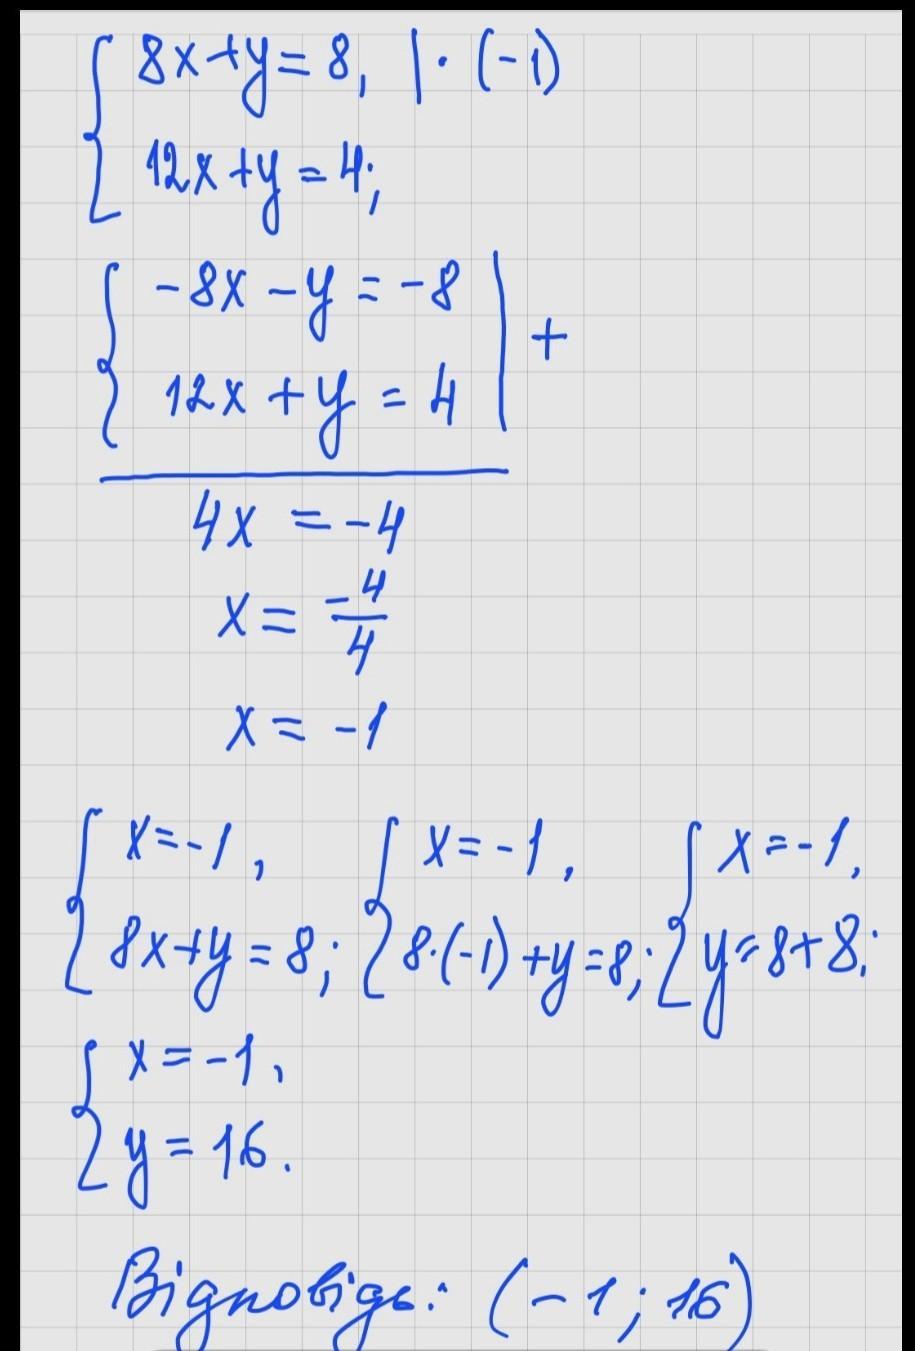 8x+y=8, | · (-1)
12x+y=4;
-8x-y=-8
12x+y=4 | +
4x=-4
x=-4/4
x=-1
x=-1, x=-1, x=-1,
8x+y=8; 8·(-1)+y=8; y=8+8;
x=-1,
y=16.
Відповідь: (-1; 16)